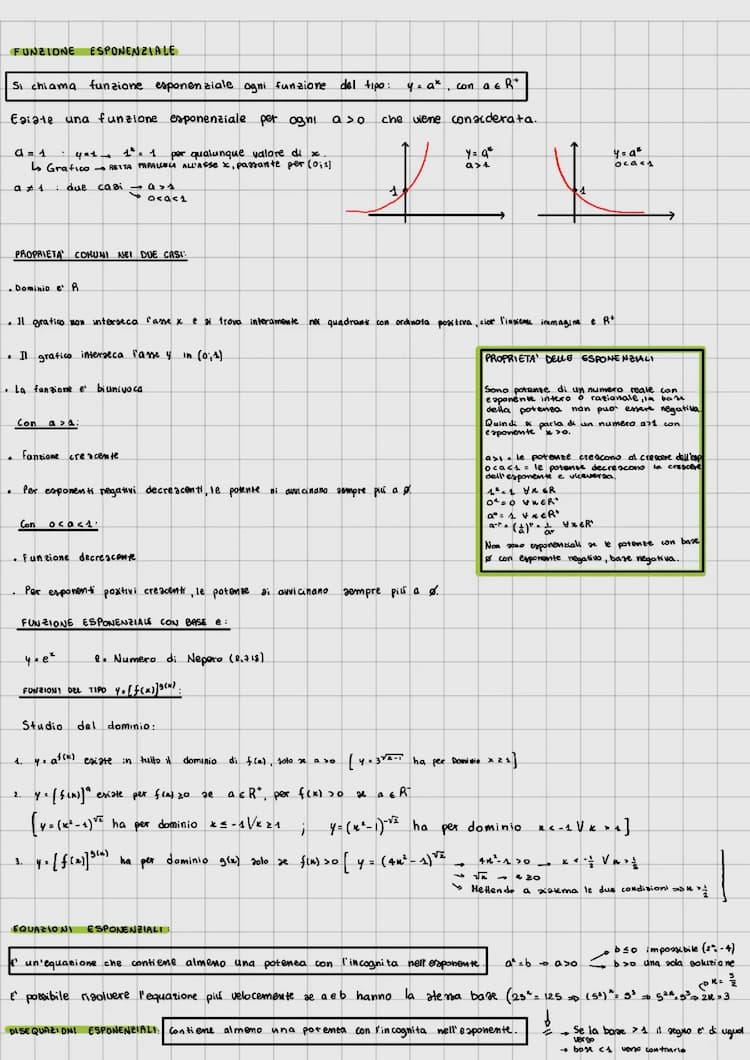 FUNZIONE ESPONENZIALE
Si chiama funzione esponenziale ogni funzione del tipo: y = aˣ, con a ∈ R⁺
Esiste una funzione esponenziale per ogni a>0 che viene considerata.
a = 1 : y=1 → 1ˣ = 1 per qualunque valore di x.
↳ Grafico → RETTA PARALLELA ALL'ASSE X, passante per (0;1)
a ≠ 1 : due casi → a>1
→ 0<a<1
1
y = aˣ
a>1
1
y = aˣ
0<a<1
PROPRIETA' COMUNI NEI DUE CASI:
• Dominio e' R
• Il grafico non interseca l'asse x e si trova interamente nei quadranti con ordinata positiva, cioe' l'insieme immagine e R⁺
• Il grafico interseca l'asse y in (0;1)
• La funzione e' biunivoca
Con a>1:
• Funzione crescente
• Per esponenti negativi decrescenti, le potenze si avvicinano sempre più a 0
Con 0<a<1:
• Funzione decrescente
• Per esponenti positivi crescenti, le potenze si avvicinano sempre più a 0.
PROPRIETA' DELLE ESPONENZIALI
Sono potenze di un numero reale con
esponente intero o razionale, la base
della potenza non puo' essere negativa
Quindi si parla di un numero a>1 con
esponente x>0.
a>1 = le potenze crescono al crescere dell'esp
0<a<1 = le potenze decrescono la crescere
dell'esponente e viceversa.
1ˣ = 1 ∀x∈R
0ˣ = 0 ∀x∈R⁺
a⁰ = 1 ∀x∈R⁺
a⁻ʳ = (1/a)ʳ = 1/aʳ ∀x∈R⁺
Non sono esponenziali se le potenze con base
0 con esponente negativo, base negativa.
FUNZIONE ESPONENZIALE CON BASE e:
y = eˣ e = Numero di Nepero (2,718)
FUNZIONI DEL TIPO y=[f(x)]^g(x):
Studio del dominio:
1. y = a^f(x) esiste in tutto il dominio di f(x), solo se a>0 [y = 3^√(x-1) ha per Dominio x≥1]
2. y = [f(x)]^a esiste per f(x)≥0 se a∈R⁺, per f(x)>0 se a∈R⁻
[y = (x²-1)^√2 ha per dominio x≤-1 V x≥1 ; y=(x²-1)^-√2 ha per dominio x<-1 V x>1]
3. y = [f(x)]^g(x) ha per dominio g(x) solo se f(x)>0 [y = (4x²-1)^√x → 4x²-1>0 → x<-1/2 V x>1/2
→ √x → x≥0
→ Mettendo a sistema le due condizioni => x>1/2]
EQUAZIONI ESPONENZIALI:
E' un'equazione che contiene almeno una potenza con l'incognita nell'esponente. aˣ=b → a>0
b≤0 impossibile (2ˣ=-4)
b>0 una sola soluzione
E' possibile risolvere l'equazione più velocemente se a e b hanno la stessa base (25ˣ = 125 => (5²)ˣ = 5³ => 5²ˣ=5³ => 2x=3
x = 3/2
DISEQUAZIONI ESPONENZIALI: Contiene almeno una potenza con l'incognita nell'esponente.
→ Se la base >1 il segno e' di ugual
verso
→ base <1 verso contrario